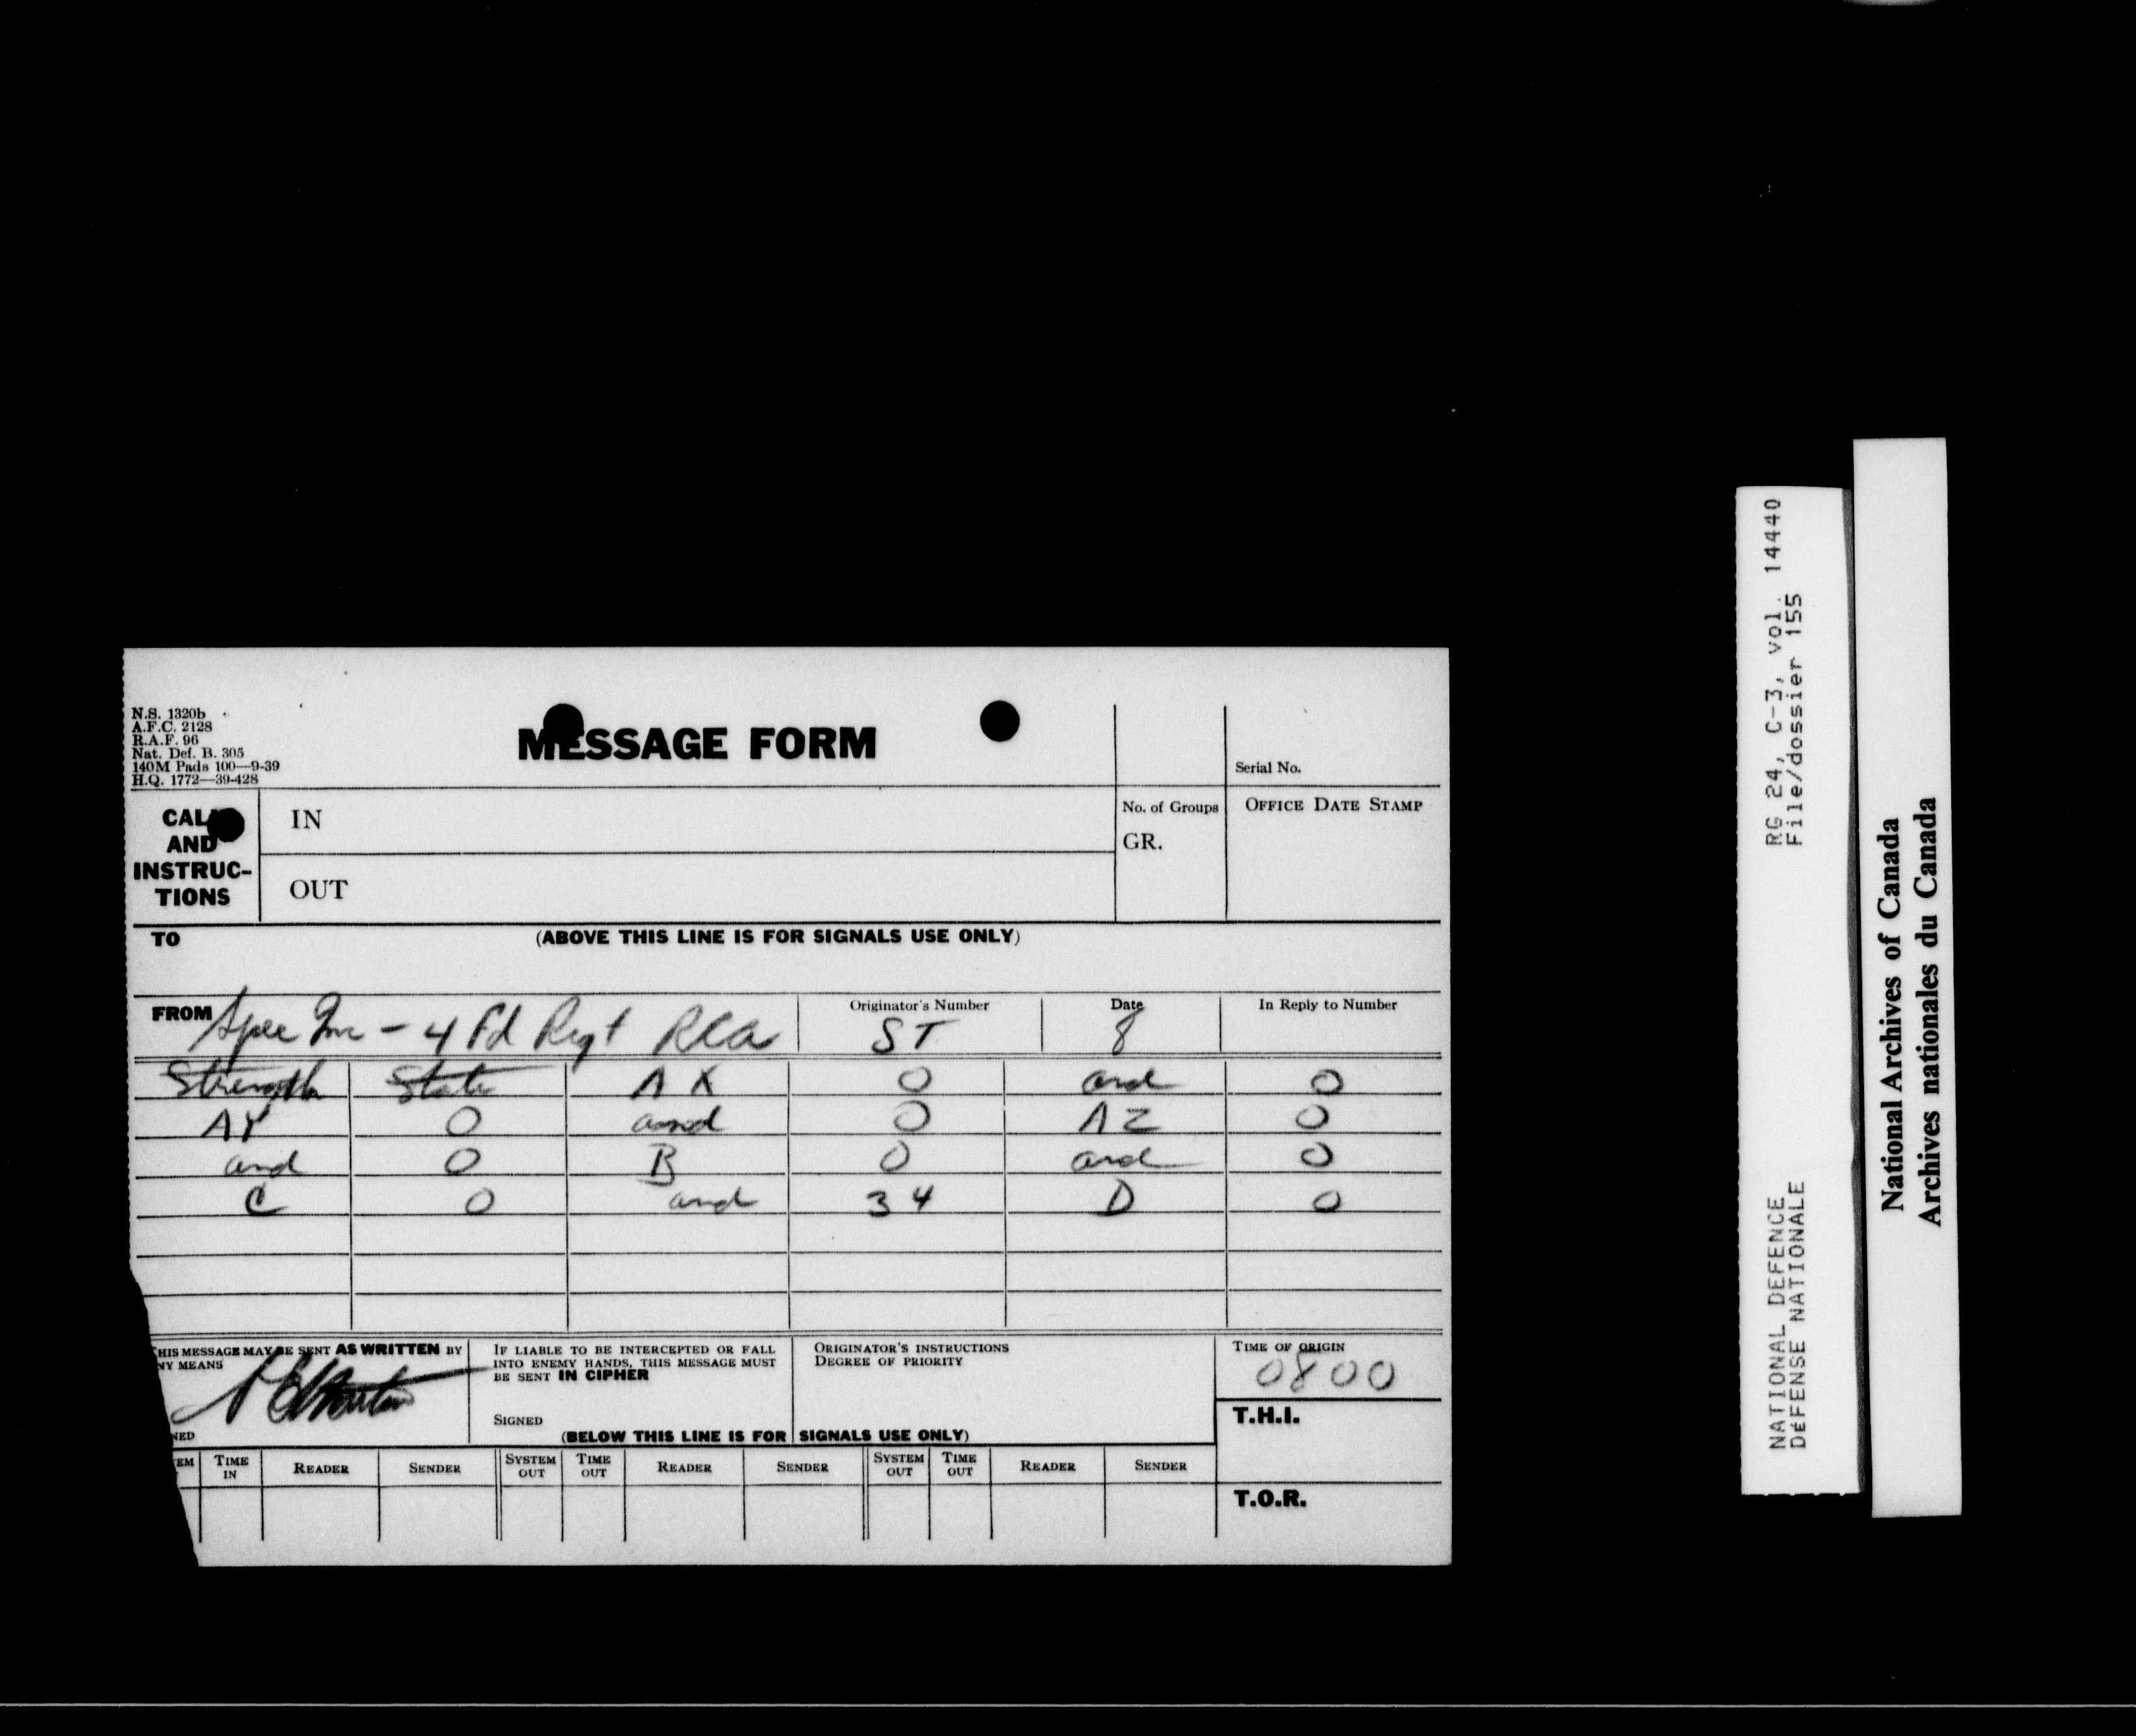 N.S. 1320b
A.F.C. 2128
R.A.F. 96
Nat. Def. B. 305
140M Pads 100—9-39
H.Q. 1772—39-428
MESSAGE FORM
Serial No.
CALL
AND
INSTRUC-
TIONS
IN
OUT
No. of Groups
GR.
OFFICE DATE STAMP
TO
(ABOVE THIS LINE IS FOR SIGNALS USE ONLY)
FROM - 4 Fd Regt RCA
Originator's Number
ST
Date
8
In Reply to Number
Strength State AX 0 and 0
AY 0 and 0 AZ 0
and 0 B 0 and 0
C 0 and 34 D 0
THIS MESSAGE MAY BE SENT AS WRITTEN BY
NY MEANS
NED
IF LIABLE TO BE INTERCEPTED OR FALL
INTO ENEMY HANDS, THIS MESSAGE MUST
BE SENT IN CIPHER
SIGNED
ORIGINATOR'S INSTRUCTIONS
DEGREE OF PRIORITY
TIME OF ORIGIN
0800
T.H.I.
(BELOW THIS LINE IS FOR SIGNALS USE ONLY)
EM TIME IN READER SENDER SYSTEM OUT TIME OUT READER SENDER SYSTEM OUT TIME OUT READER SENDER
T.O.R.
RG 24, C-3, vol. 14440
File/dossier 155
NATIONAL DEFENCE
DÉFENSE NATIONALE
National Archives of Canada
Archives nationales du Canada